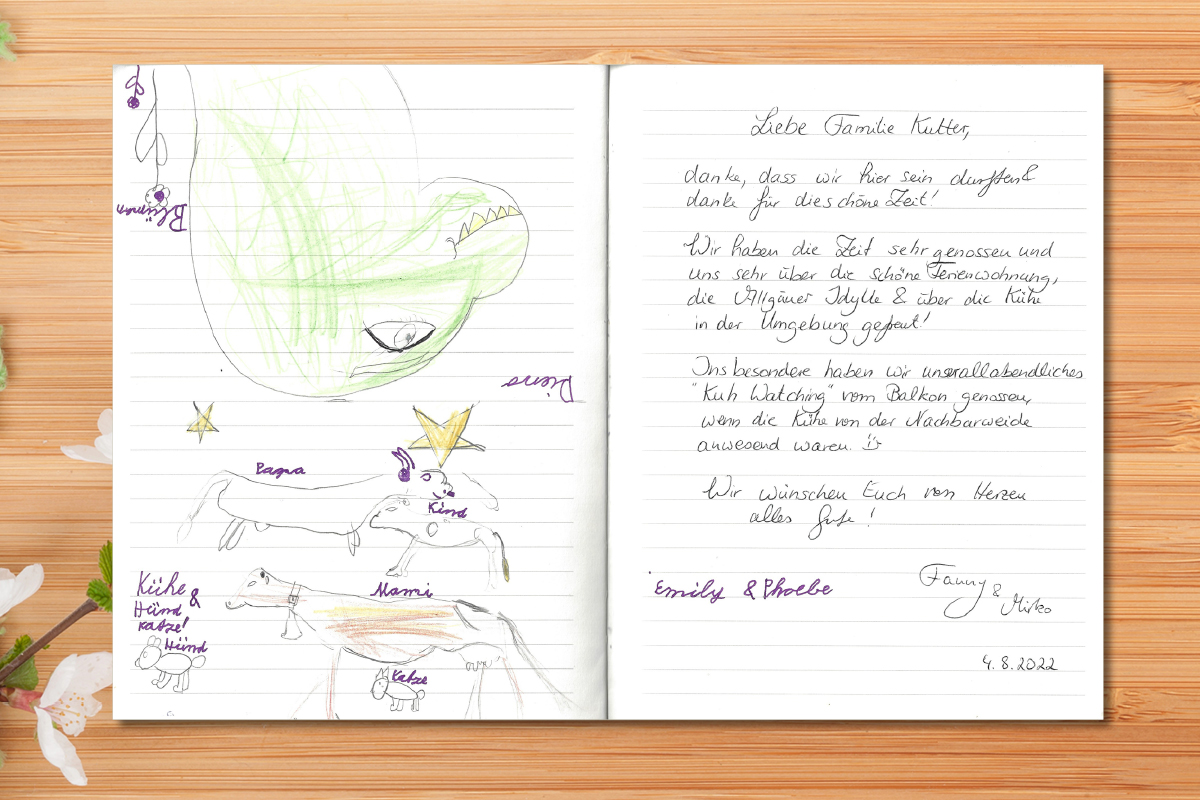 Blümen
Dieno
Pappa
Kind
Mami
Kühe
&
Hünd
Katze!
Hünd
Katze
Liebe Familie Kutter,
danke, dass wir hier sein durften &
danke für die schöne Zeit!
Wir haben die Zeit sehr genossen und
uns sehr über die schöne Ferienwohnung,
die Allgäuer Idylle & über die Kühe
in der Umgebung gefreut!
Insbesondere haben wir unser allabendliches
"Kuh Watching" vom Balkon genossen,
wenn die Kühe von der Nachbarweide
anwesend waren. :)
Wir wünschen Euch von Herzen
alles Gute!
Emily & Phoebe
Fanny
&
Mirko
4.8.2022